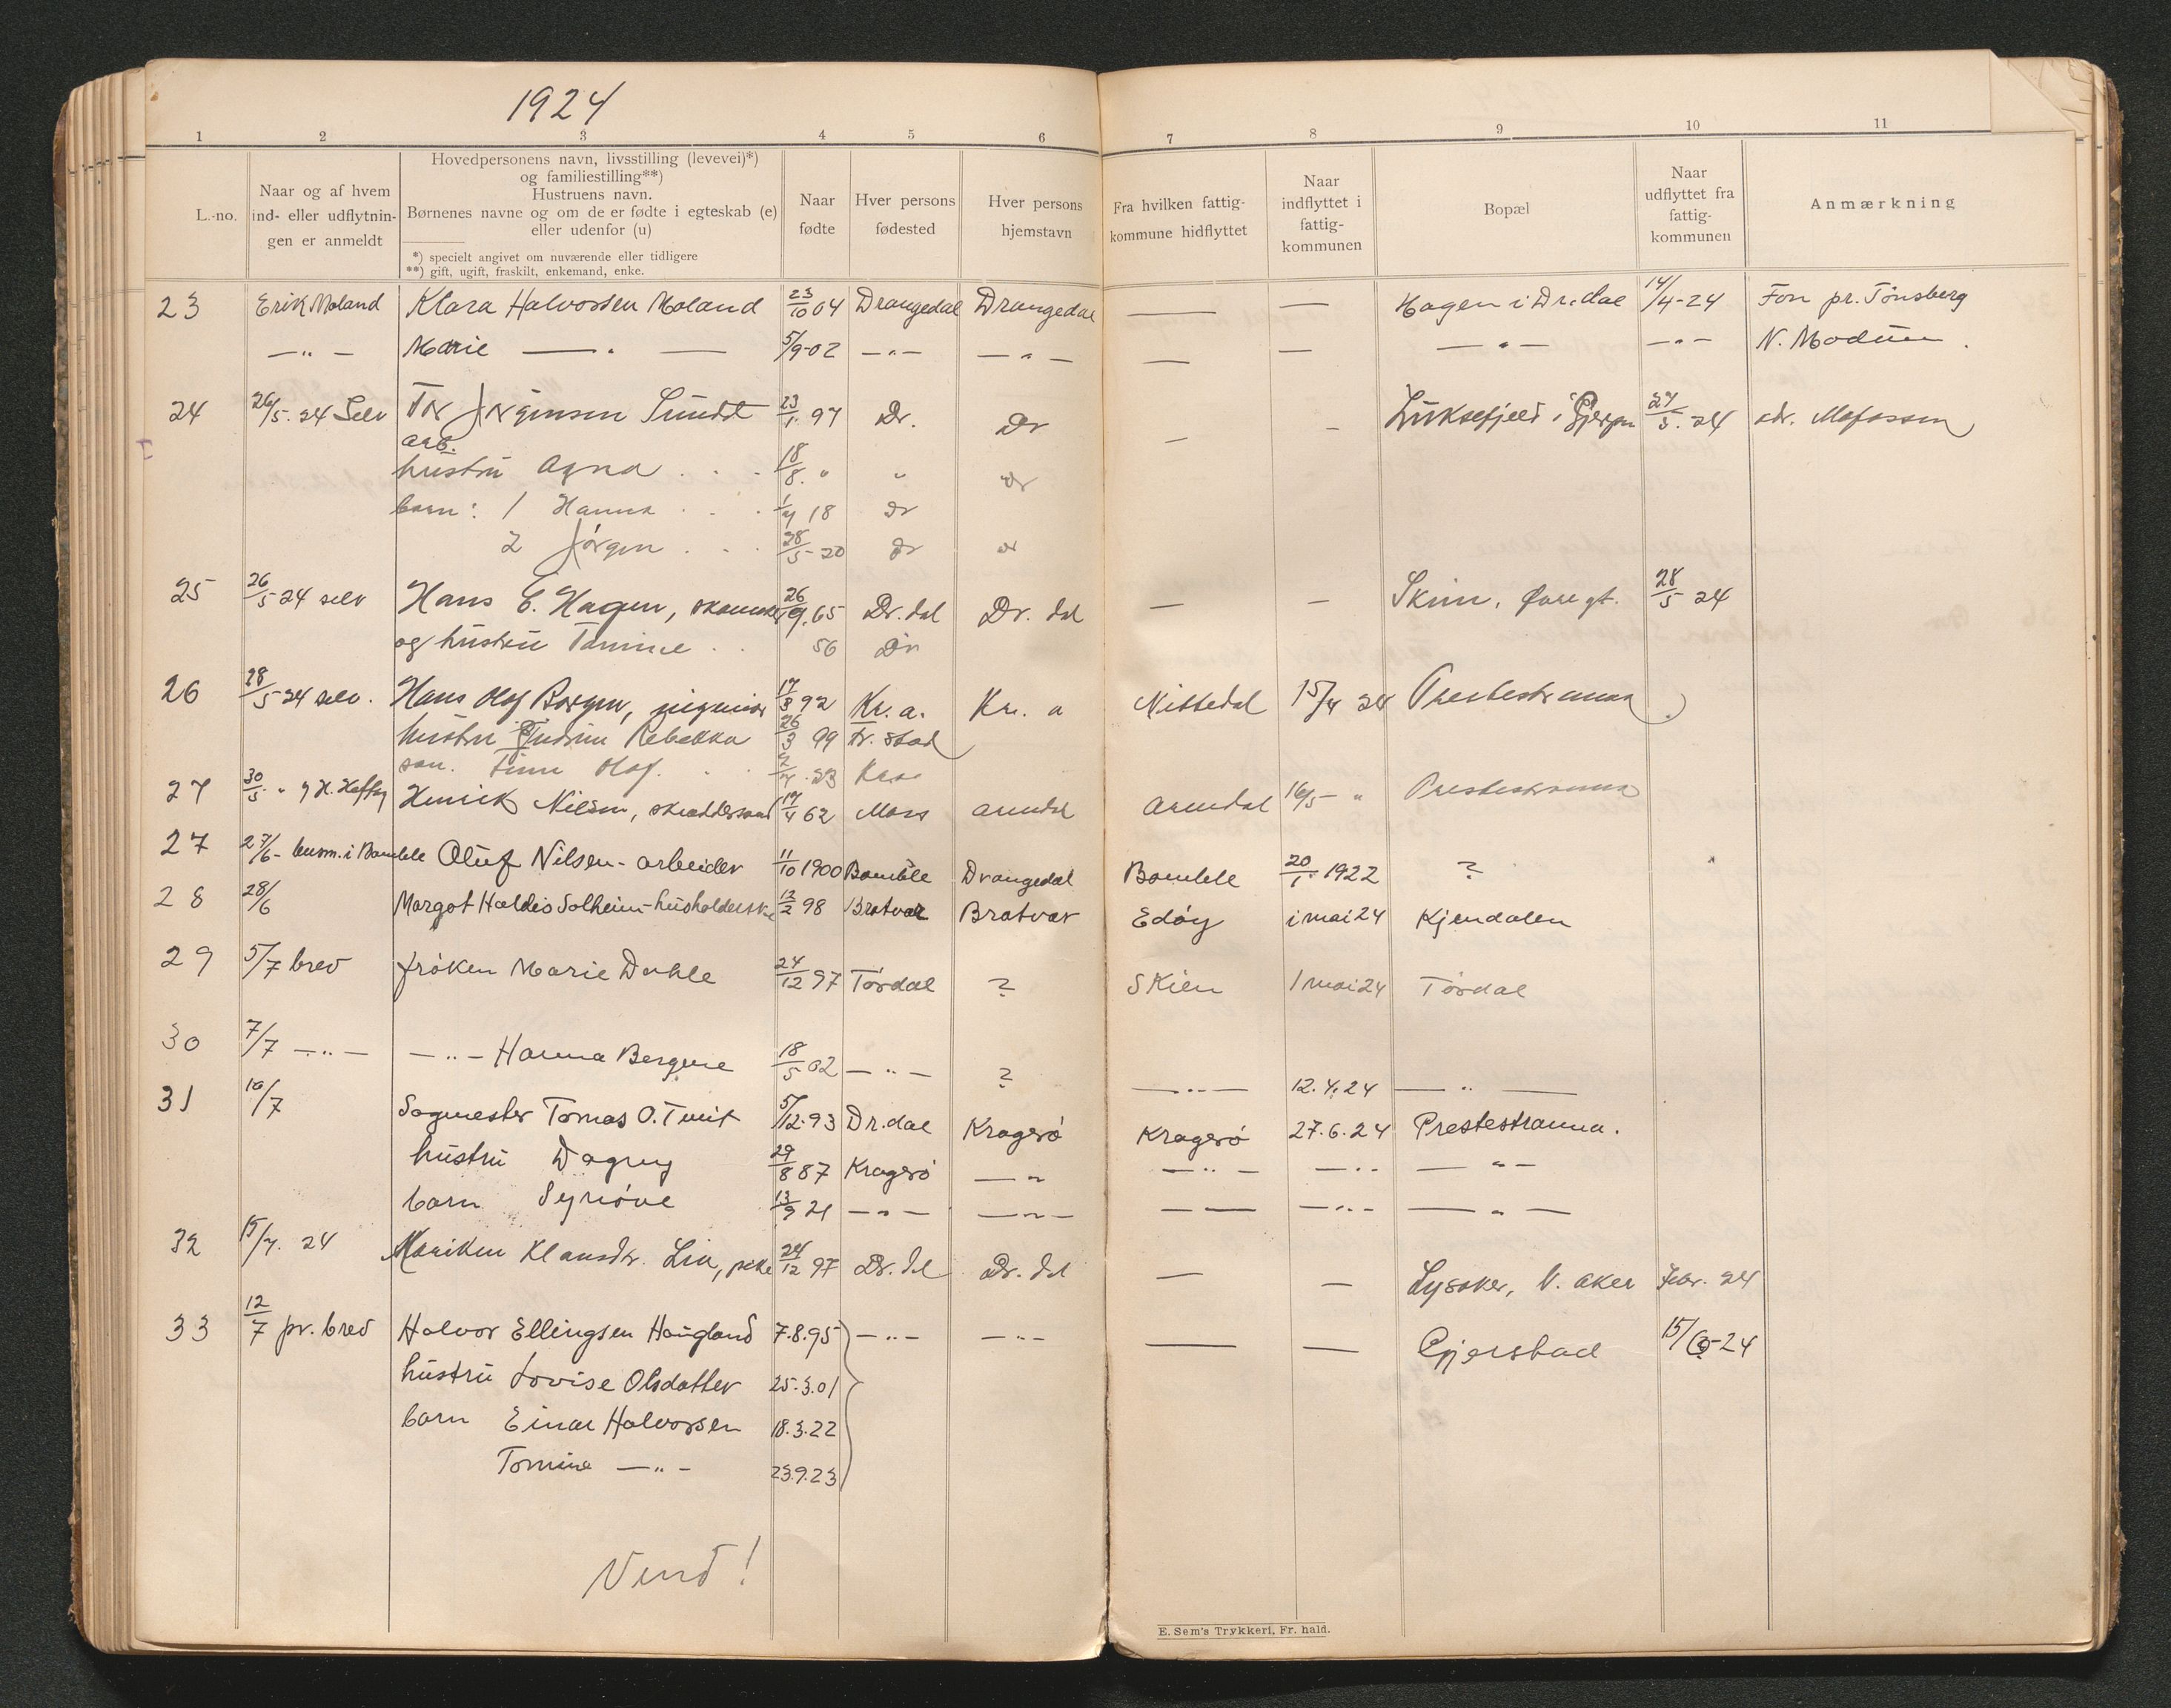 1924
1 2 3 4 5 6 7 8 9 10 11
L.-no.
Naar og af hvem
ind- eller udflytnin-
gen er anmeldt
Hovedpersonens navn, livsstilling (levevei)*)
og familiestilling**)
Hustruens navn.
Børnenes navne og om de er fødte i egteskab (e)
eller udenfor (u)
*) specielt angivet om nuværende eller tidligere
**) gift, ugift, fraskilt, enkemand, enke.
Naar
fødte
Hver persons
fødested
Hver persons
hjemstavn
Fra hvilken fattig-
kommune hidflyttet
Naar
indflyttet i
fattig-
kommunen
Bopæl
Naar
udflyttet fra
fattig-
kommunen
Anmærkning
23 Erik Moland Klara Halvorsen Moland 23/10 04 Drangedal Drangedal — — Hagen i Dr.dal 14/4-24 Fon pr. Tønsberg
—"— Marie —"— 5/9-02 —"— —"— — — —"— —"— N. Modum.
24 26/5. 24 Selv Tor Jørgensen Sundt 23/1. 97 Dr. Dr — — Luksefjeld i Gjerpen 27/5. 24 adr.
arb.
hustru Agna . . . 18/8. " " Dr
barn: 1 Hanna . . . 1/4 18 Dr
2 Jørgen . . . 28/5-20 Dr Dr
25 26/5 24 selv Hans E. Hagen, 26/9. 65 Dr. dal Dr. dal — — Skien, 28/5 24
og hustru Tomine . . 56 Dr
26 28/5 24 selv. Hans Olaf Borgen, ingeniør 17/8 92 Kr. a. Kr. a Nittedal 15/4 24 Prestestranna
hustru Gudrun Rebekka 26/3 99 Fr. stad
søn. Finn Olaf . . 23 Kr.a
27 30/5 " Henrik Nilsen, skræddersvend 17/4 62 Moss Arendal Arendal 16/5 " Prestestranna
27 27/6- lensm. i Bamble Oluf Nilsen - arbeider 11/10 1900 Bamble Drangedal Bamble 20/1. 1922 ?
28 28/6 Margot Haldis Solheim - husholderske 12/2 98 Bratvær Bratvær Edøy i mai 24 Kjendalen
29 5/7 brev frøken Marie Dahle 24/12 97 Tørdal ? Skien 1 mai 24 Tørdal
30 7/7 —"— —"— Hanna Bergene 18/5 02 —"— ? —"— 12.4.24 —"—
31 10/7 Sagmester Tomas O. Tveit 5/12.93 Dr.dal Kragerø Kragerø 27.6.24 Prestestranna.
hustru Dagny 29/8 87 Kragerø —"— —"— —"— —"—
barn Synøve 13/9 21 —"— —"— — — —"— —"—
32 15/7. 24 Mariken Klausdtr. Lia, pike 24/12 97 Dr. dal Dr. dal — — Lysaker, V. Aker Febr. 24
33 12/7 pr. brev Halvor Ellingsen Haugland 7.8.95 —"— —"— — — Gjerstad 15/6-24
hustru Lovise Olsdatter 25.3.01
barn Einar Halvorsen 18.3.22
Tomine —"— 23.9.23
Vend!
E. Sem's Trykkeri, Fr. hald.